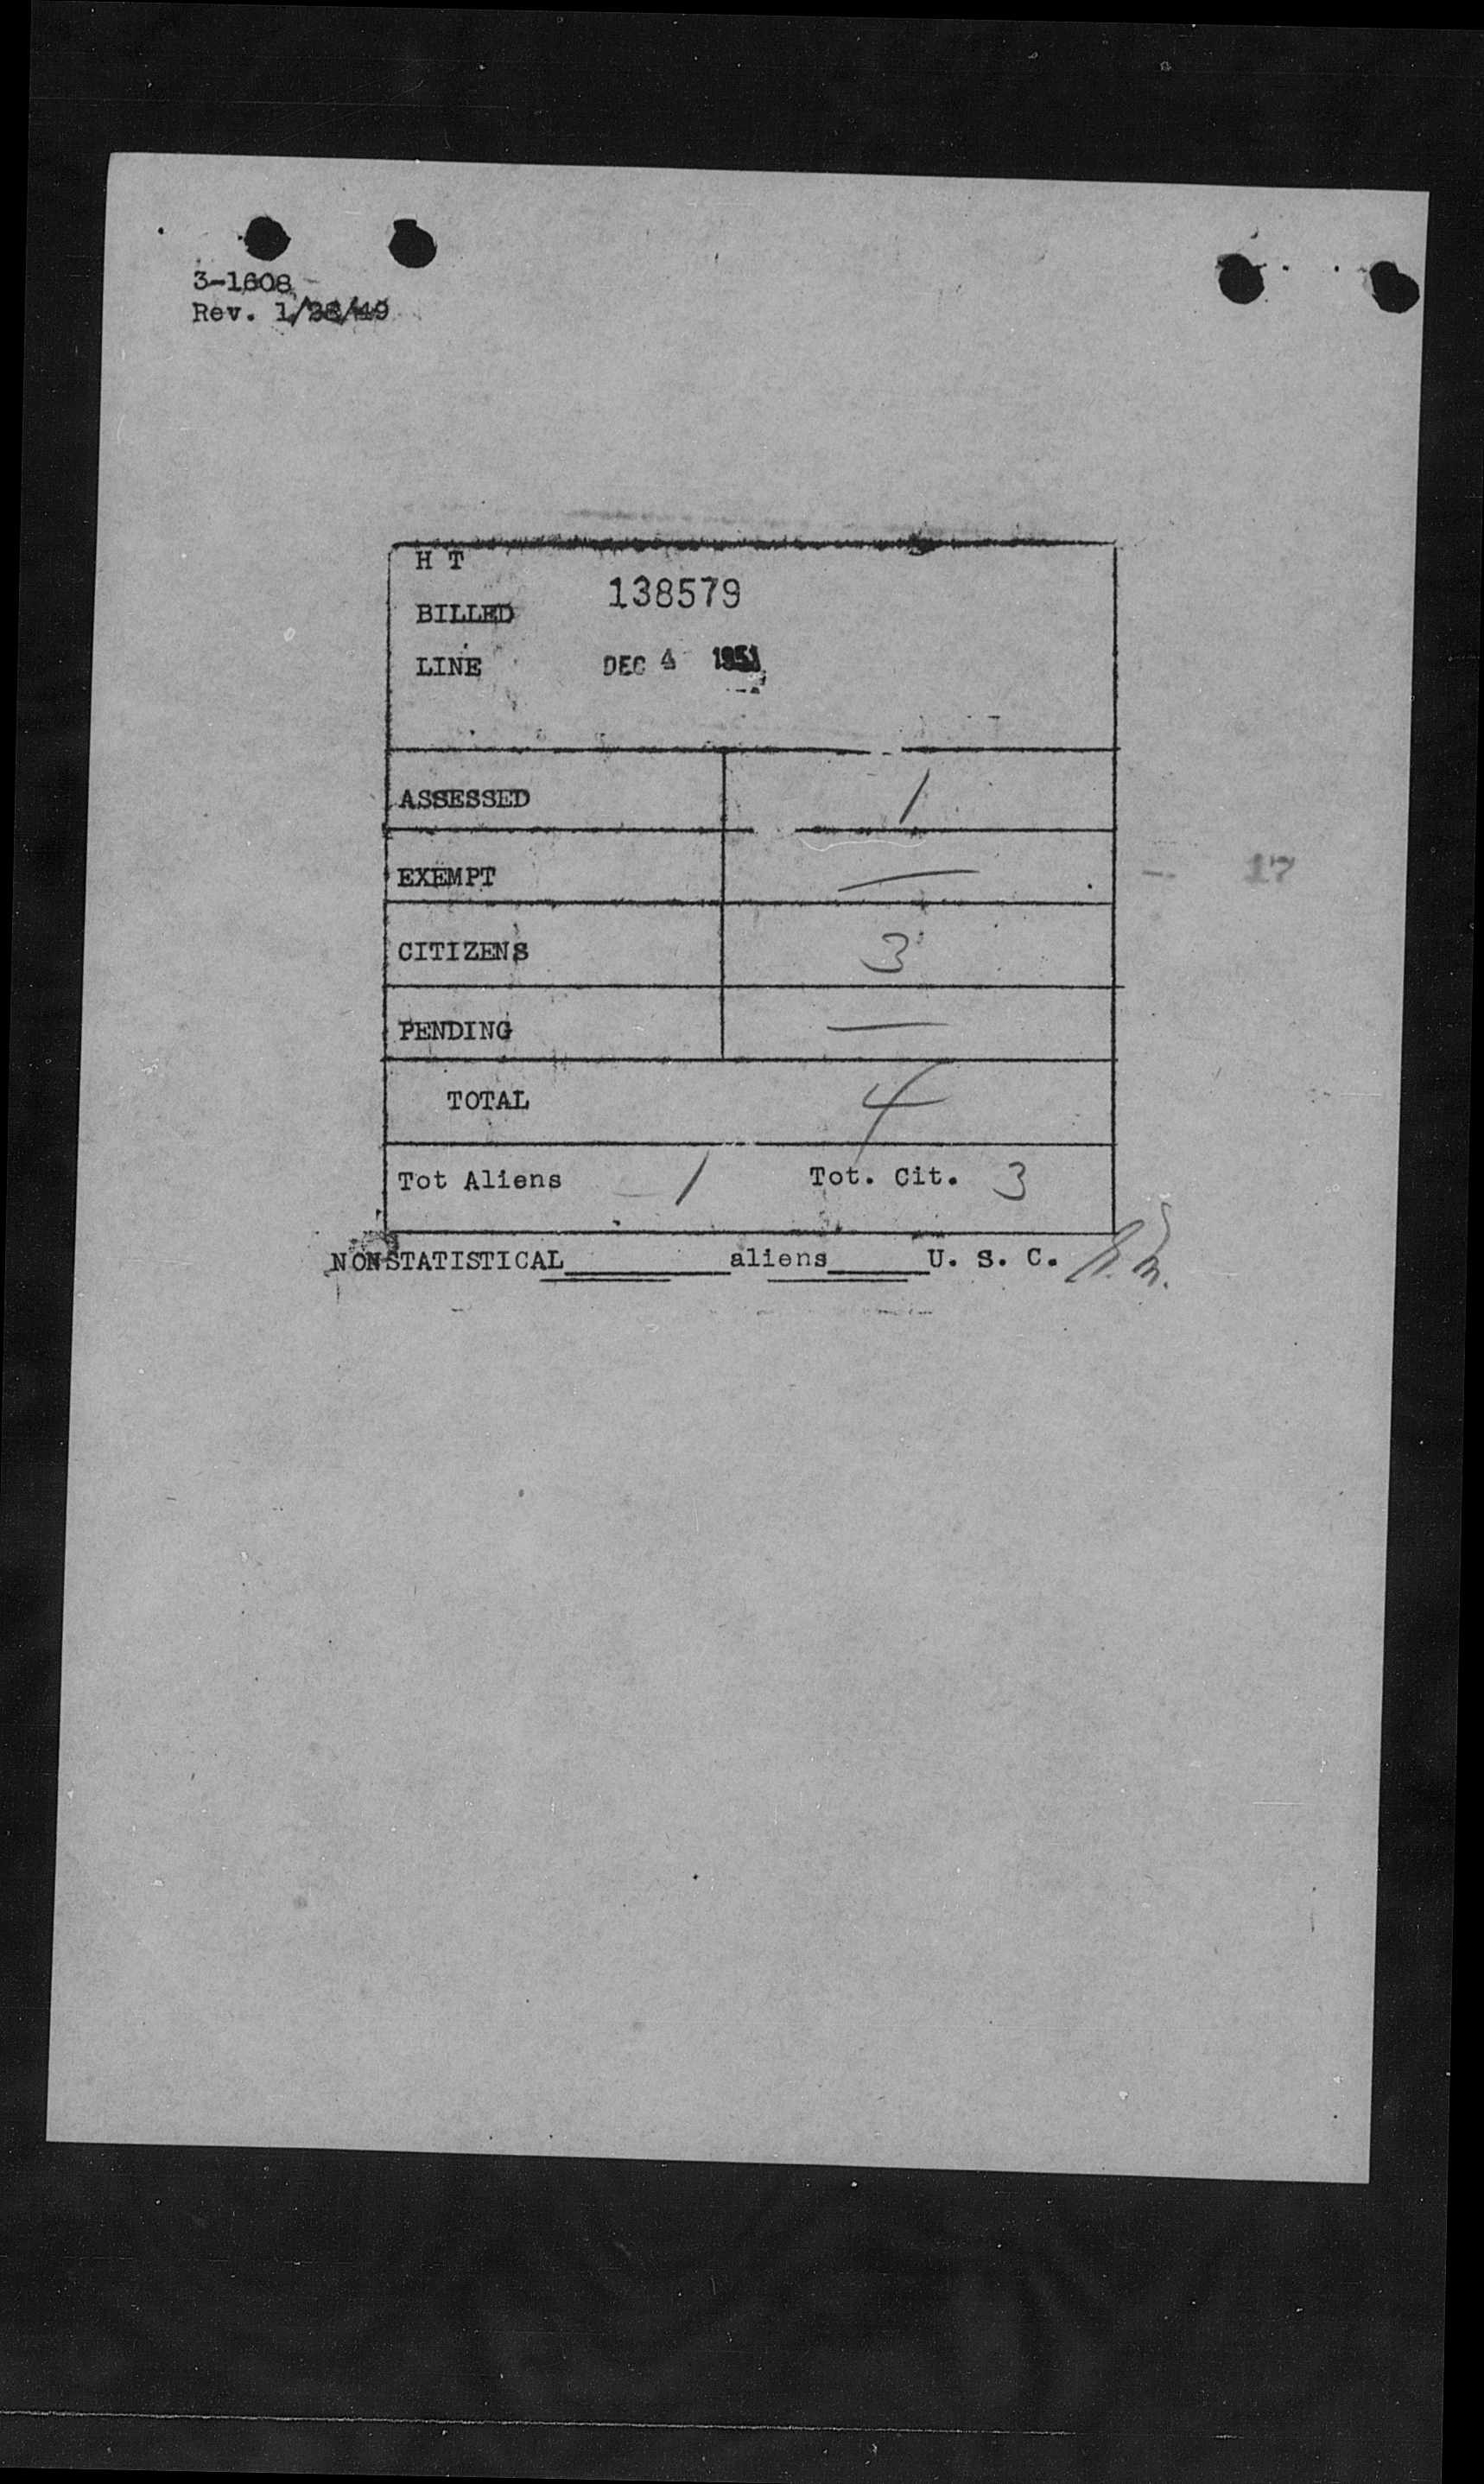 3-1608
Rev. 1/28/49
H T
138579
BILLED
LINE DEC 4 1951
ASSESSED 1
EXEMPT —
17
CITIZENS 3
PENDING —
TOTAL 4
Tot Aliens 1 Tot. Cit. 3
NONSTATISTICAL__________aliens______U. S. C.